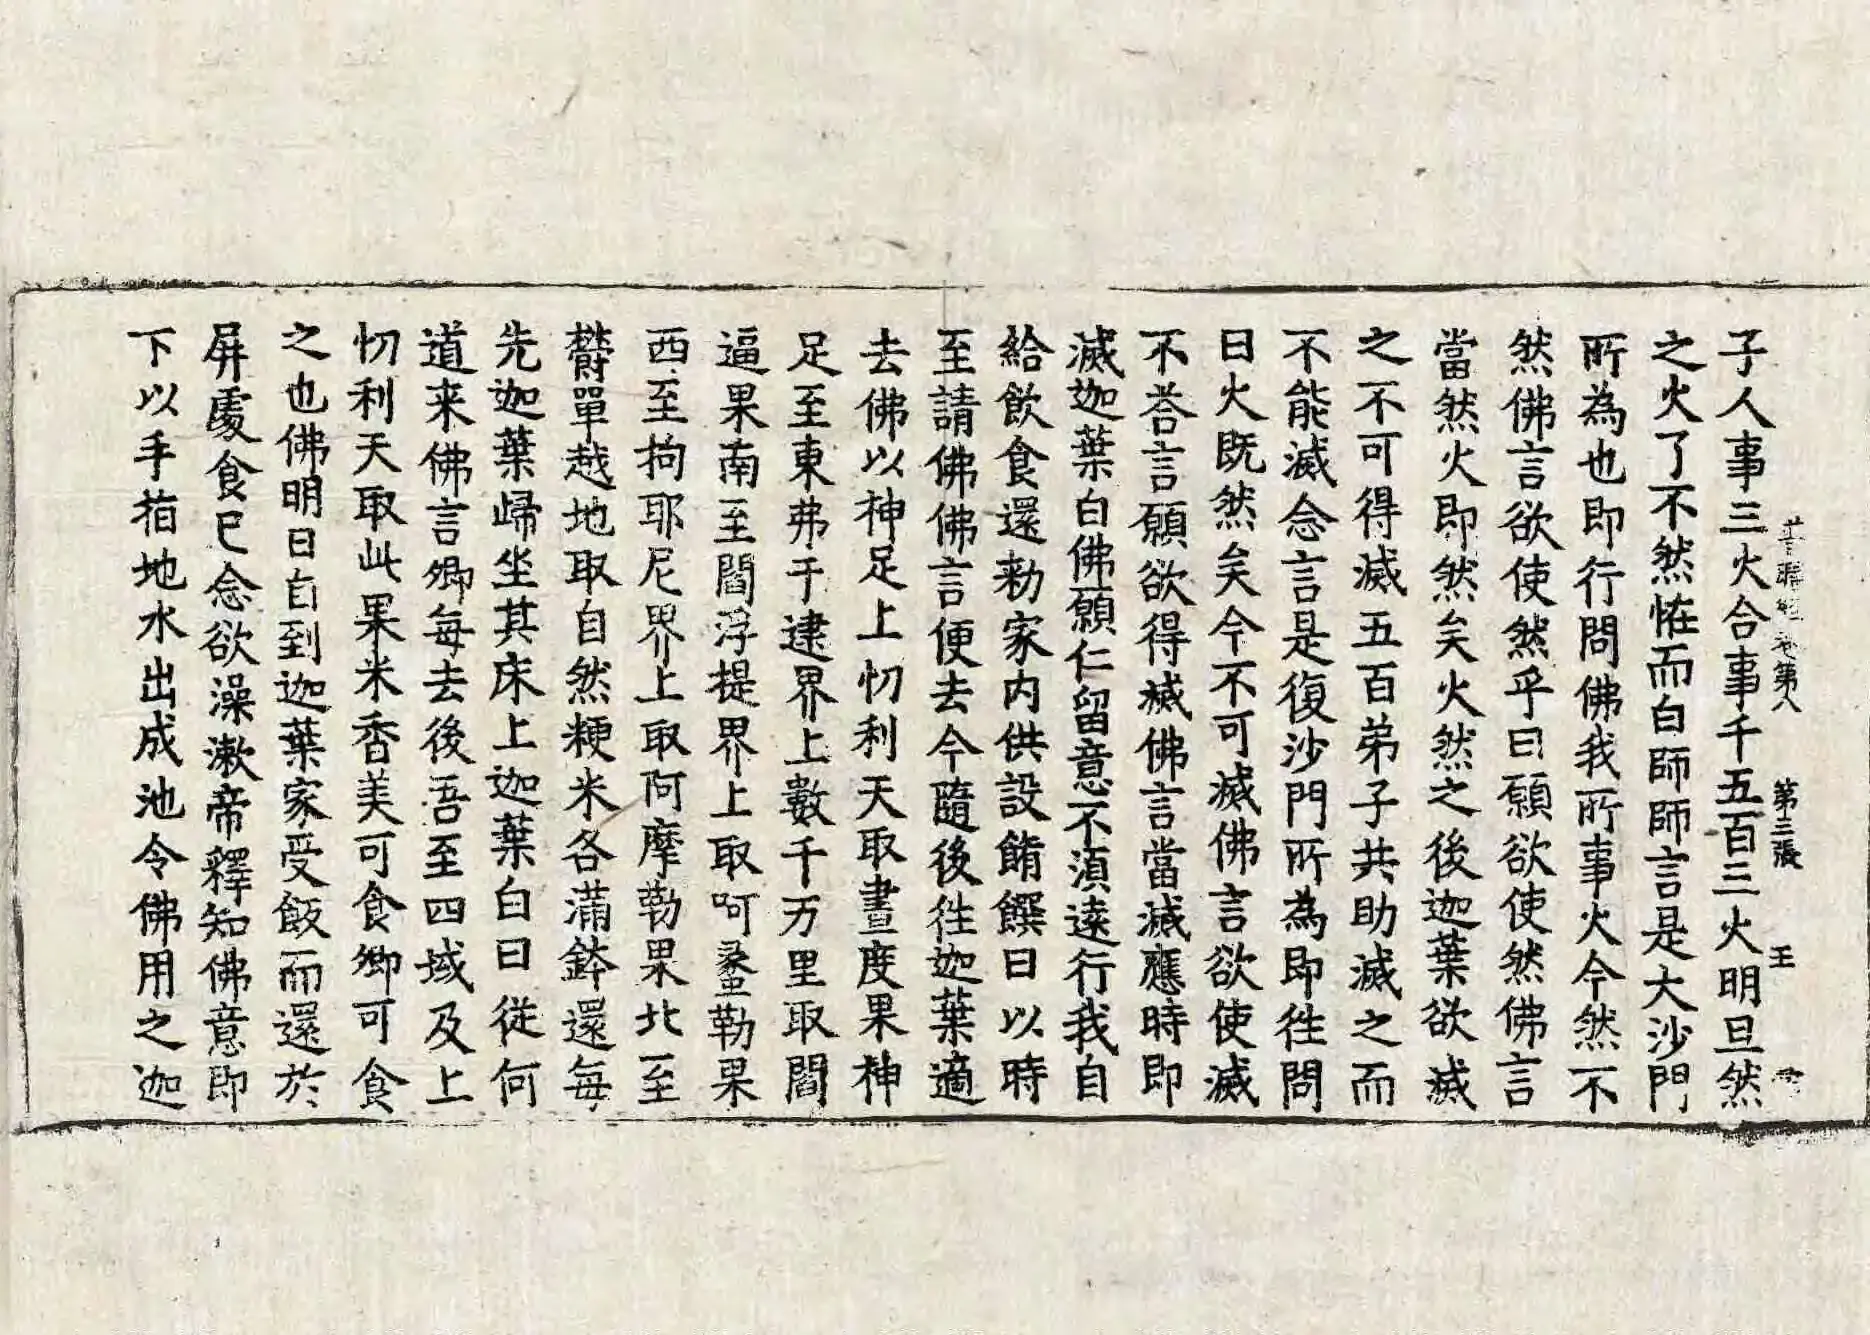 普曜經卷第八　第三張　王
子人事三火合事千五百三火明旦然
之火了不然恠而白師師言是大沙門
所為也即行問佛我所事火今然不
然佛言欲使然乎曰願欲使然佛言
當然火即然矣火然之後迦葉欲滅
之不可得滅五百弟子共助滅之而
不能滅念言是復沙門所為即往問
曰火既然矣今不可滅佛言欲使滅
不荅言願欲得滅佛言當滅應時即
滅迦葉白佛願仁留意不湏遠行我自
給飲食還勑家內供設餚饌日以時
至請佛佛言便去今隨後往迦葉適
去佛以神足上忉利天取晝度果神
足至東弗于逮界上數千万里取閻
逼果南至閻浮提界上取呵蠡勒果
西至拘耶尼界上取阿摩勒果北至
欝單越地取自然粳米各滿鉢還每
先迦葉歸坐其床上迦葉白曰從何
道来佛言卿每去後吾至四域及上
忉利天取此果米香美可食卿可食
之也佛明日自到迦葉家受飯而還於
屏處食已念欲澡漱帝釋知佛意即
下以手指地水出成池令佛用之迦